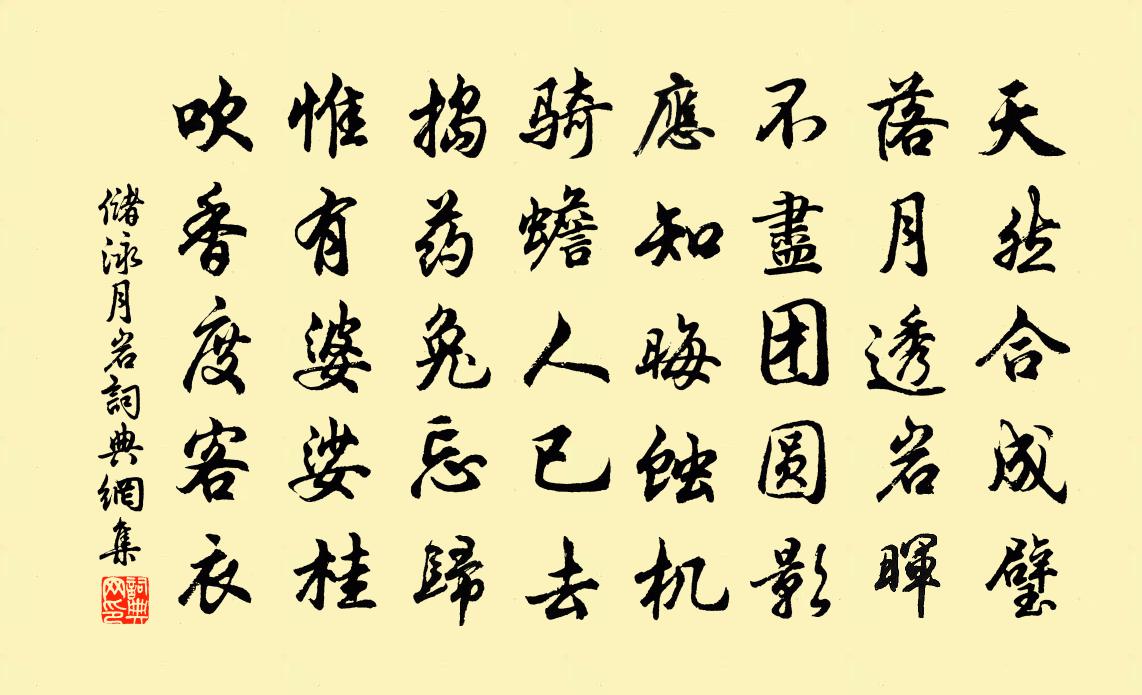 天然合成璧
落月透岩暉
不盡团圆影
應知晦蚀机
骑蟾人已去
搗药兔忘歸
惟有婆娑桂
吹香度客衣
儲泳月岩詞典網集
詞典网印